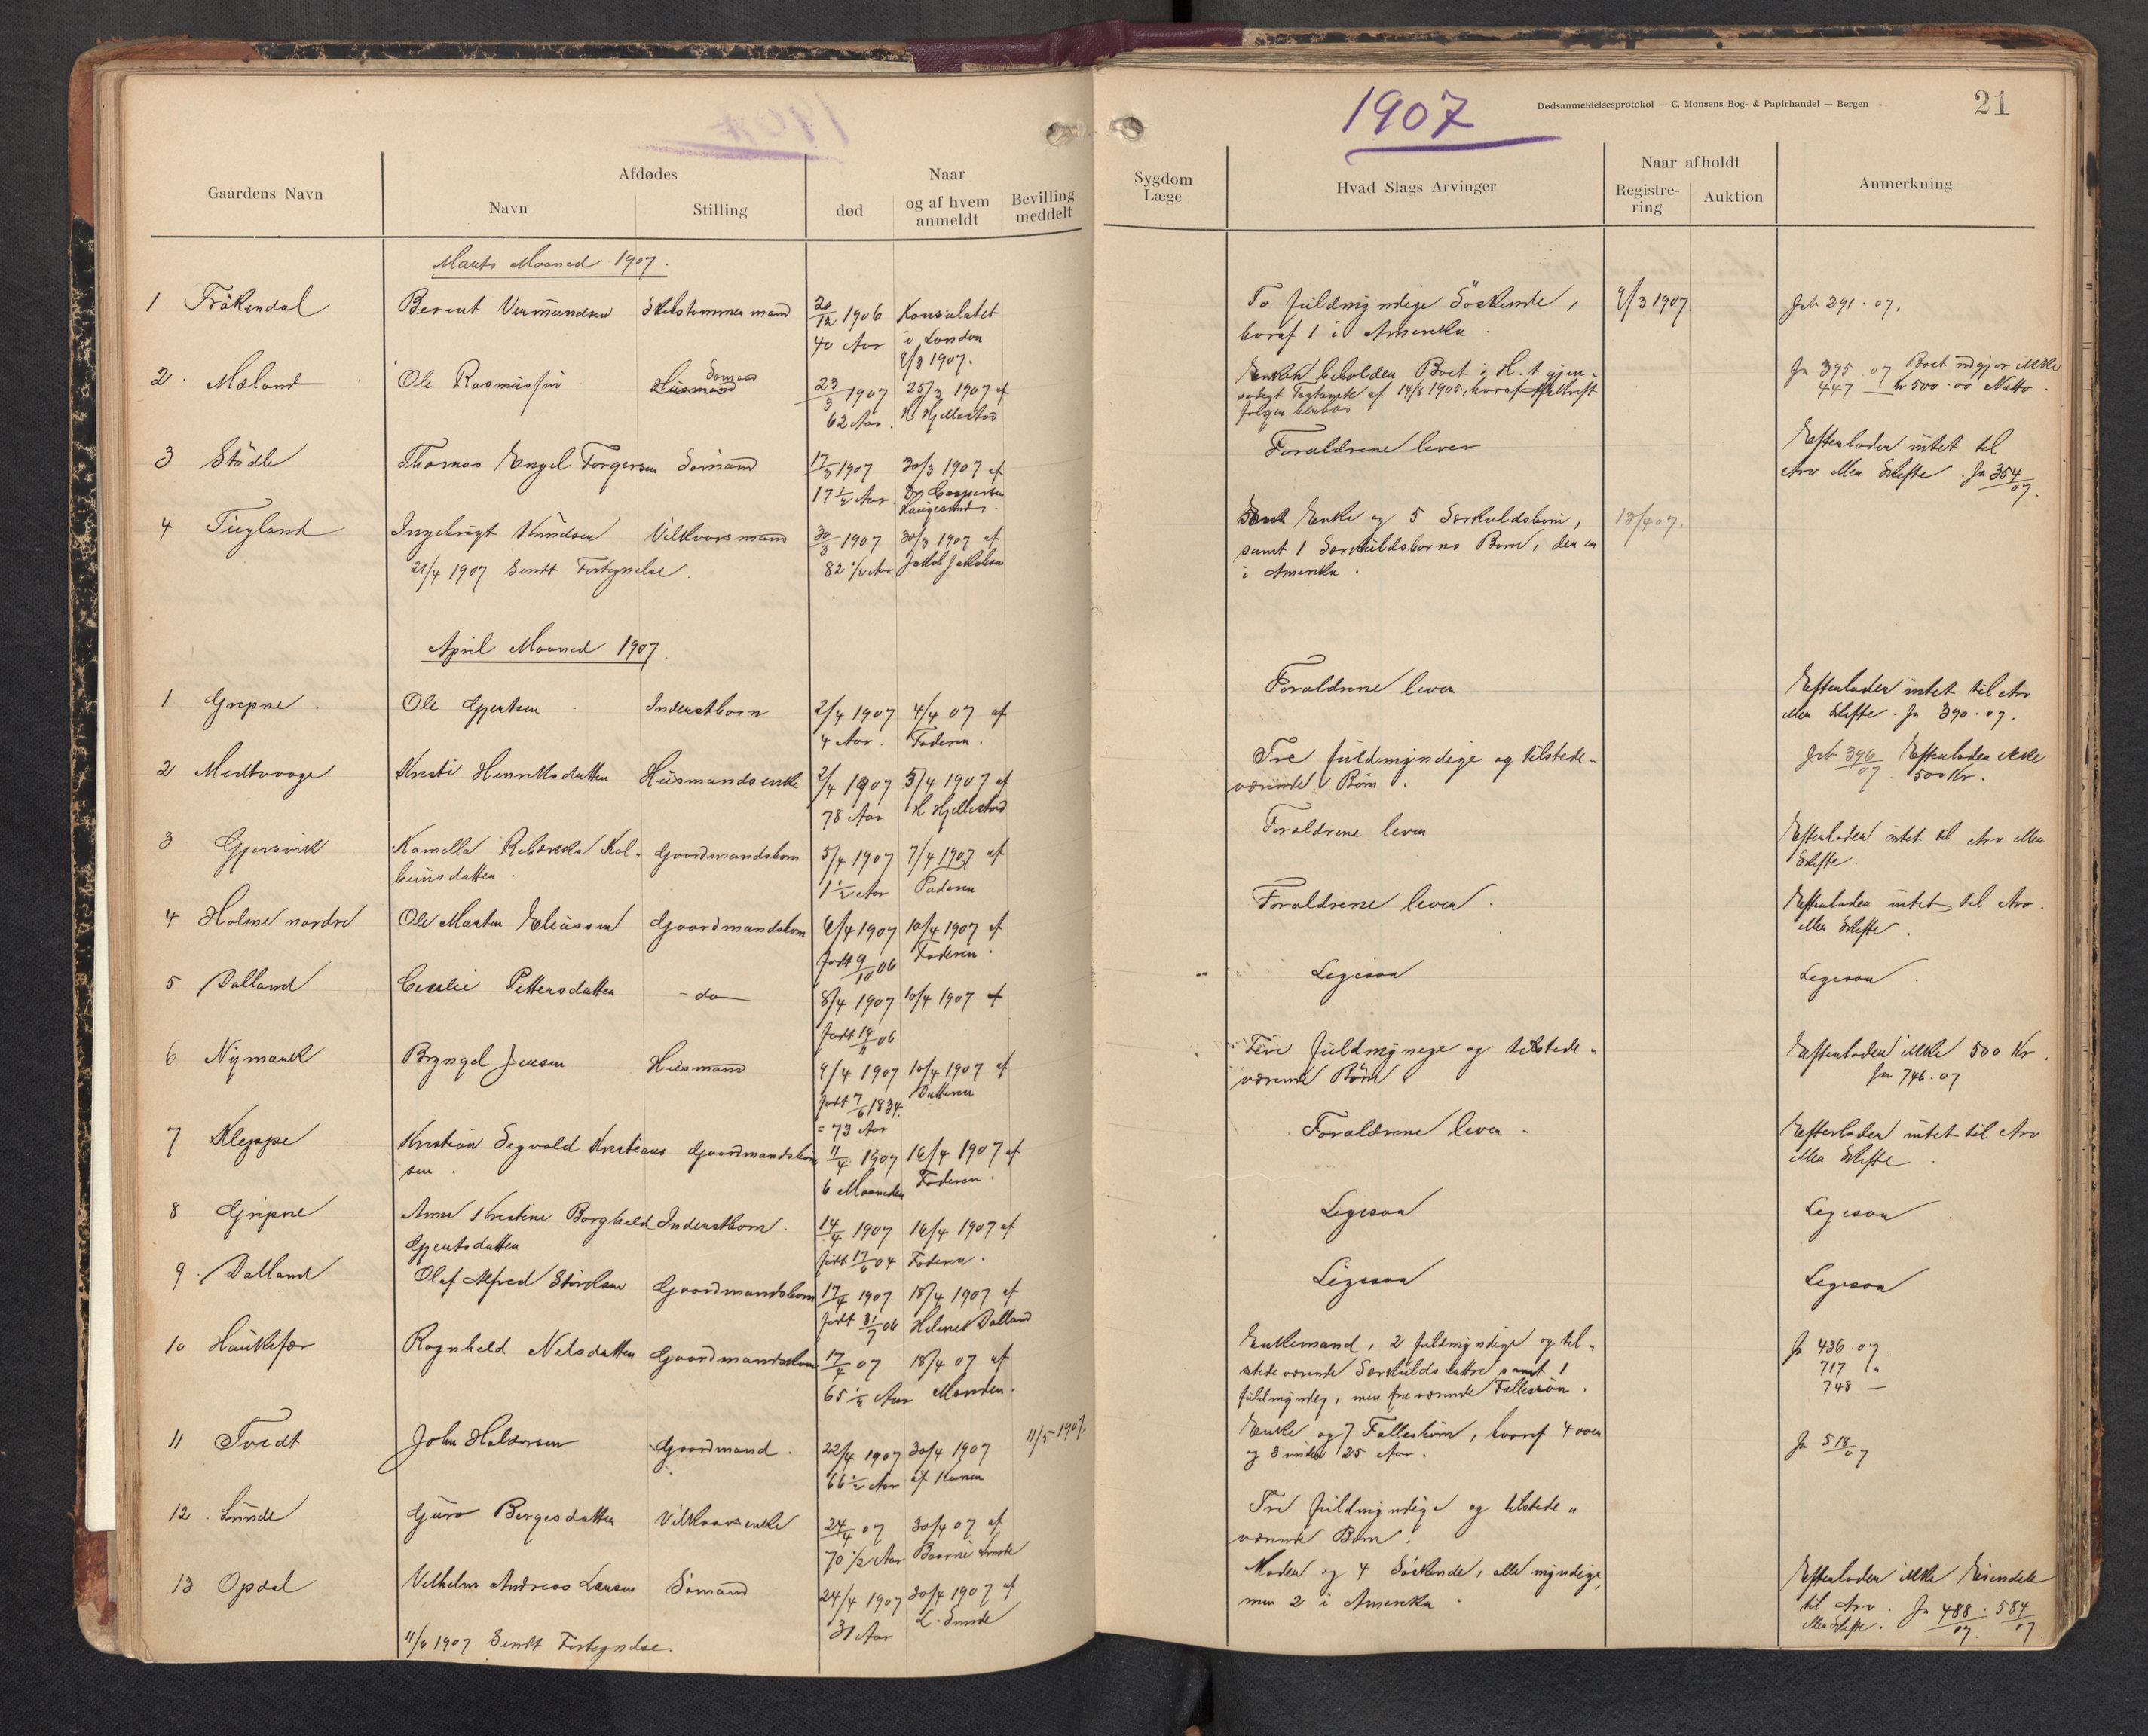 1907
Dødsanmeldelsesprotokol — C. Monsens Bog- & Papirhandel — Bergen
21
Gaardens Navn
Afdødes
Navn
Stilling
Naar
død
og af hvem anmeldt
Bevilling meddelt
Sygdom Læge
Hvad Slags Arvinger
Naar afholdt
Registre-ring
Auktion
Anmerkning
Marts Maaned 1907.
1 Frøkendal Berent Vermundsen Skibstømmermand 20/12 1906 Konsulatet To fuldmyndige Søskende, 9/3 1907. Jnb 291-07.
40 Aar i London hvoraf 1 i Amerika.
9/3 1907.
2. Mæland Ole Rasmussen Husmand Sømand 23/3 1907 25/3 1907 af Enken beholder Boet i H. t. gjen- Jn 395 07 Boet udgjør ikke
62 Aar. H Hjellestad sidigt Testamente af 14/8 1905, hvoraf 447 — kr 500.00 Netto.
følger
3 Stødle Thomas Engel Torgersen Sømand 17/3 1907 30/3 1907 af Forældrene lever Efterlader intet til
17 1/2 Aar. Dr Caspersen Arv eller Skifte. Jn 354/07.
Haugesund.
4 Tugland Ingebrigt Knudsen Vilkaarsmand 30/3 1907 30/3 1907 af Enke og 5 Særkuldsbørn, 13/4 07.
21/4 1907 Sendt Fortegnelse. 82 1/2 Aar Jakob Jakobsen samt 1 Særkuldsbarns Barn, der er
i Amerika.
April Maaned 1907.
1 Gripne Ole Gjertsen Inderstbarn 2/4 1907 4/4 07 af Forældrene lever Efterlader intet til Arv
4 Aar. Faderen. eller Skifte. Jn 390-07.
2 Medtvaage Kristi Henriksdatter Husmandsenke 2/4 1907 5/4 1907 af Tre fuldmyndige og tilstede- Jnb 396/07 Efterlader ikke
78 Aar H Hjellestad værende Børn. 500 Kr.
3 Gjersvik Kamilla Rebekka Kol- Gaardmandsbarn 5/4 1907 7/4 1907 af Forældrene lever Efterlader intet til Arv eller
beinsdatter. 1 1/2 Aar Faderen Skifte.
4 Holme nordre Ole Martin Eliassen Gaardmandsbarn 6/4 1907 10/4 1907 af Forældrene lever. Efterlader intet til Arv
født 9/10 06 Faderen. eller Skifte.
5 Dalland Cecilie Pettersdatter - do - 8/4 1907 10/4 1907 af Ligesaa Ligesaa.
født 14/11 06
6 Nymark Bryngel Jensen Husmand 9/4 1907 10/4 1907 af Fire fuldmynege og tilstede- Efterlader ikke 500 Kr.
født 7/6 1834. Datteren værende Børn Jn 746-07
= 73 Aar
7 Kleppe Kristian Segvald Kristians Gaardmandsbarn 11/4 1907 16/4 1907 af Forældrene lever - Efterlader intet til Arv
sen. 6 Maaneder Faderen. eller Skifte.
8 Gripne Anna Kristine Borghild Inderstbarn. 14/4 1907 16/4 1907 af Ligesaa Ligesaa.
Gjertsdatter født 17/6 04 Faderen.
9. Dalland Olaf Alfred Størksen Gaardmandsbarn 17/4 1907 18/4 1907 af Ligesaa Ligesaa
født 31/7 06 Helmer Dalland
10 Haukefær Ragnhild Nilsdatter Gaardmandskone 17/4 07 18/4 07 af Enkemand, 2 fuldmyndige og til- Jn 436-07.
65 1/2 Aar Manden. stedeværende Særkuldsdøttre samt 1 717 "
fuldmyndig, men fraværende Fællessøn. 748 —
11 Tvedt John Halvorsen Gaardmand. 22/4 1907 30/4 1907 11/5 1907. Enke og 7 Fællesbørn, hvoraf 4 over Jn 518/07
66 1/2 Aar af Konen og 3 under 25 Aar.
12. Sunde Guro Børgesdatter Vilkaarsenke 24/4 07 30/4 07 af Tre fuldmyndige og tilstede-
70 1/2 Aar Sunde værende Børn.
13 Opdal Vilhelm Andreas Larsen Sømand 24/4 1907 30/4 1907 af Moder og 4 Søskende, alle myndige, Efterlader ikke Eiendele
31 Aar L. Sunde men 2 i Amerika. til Arv. Jn 488/07. 584/07.
11/6 1907 Sendt Fortegnelse. eller Skifte.